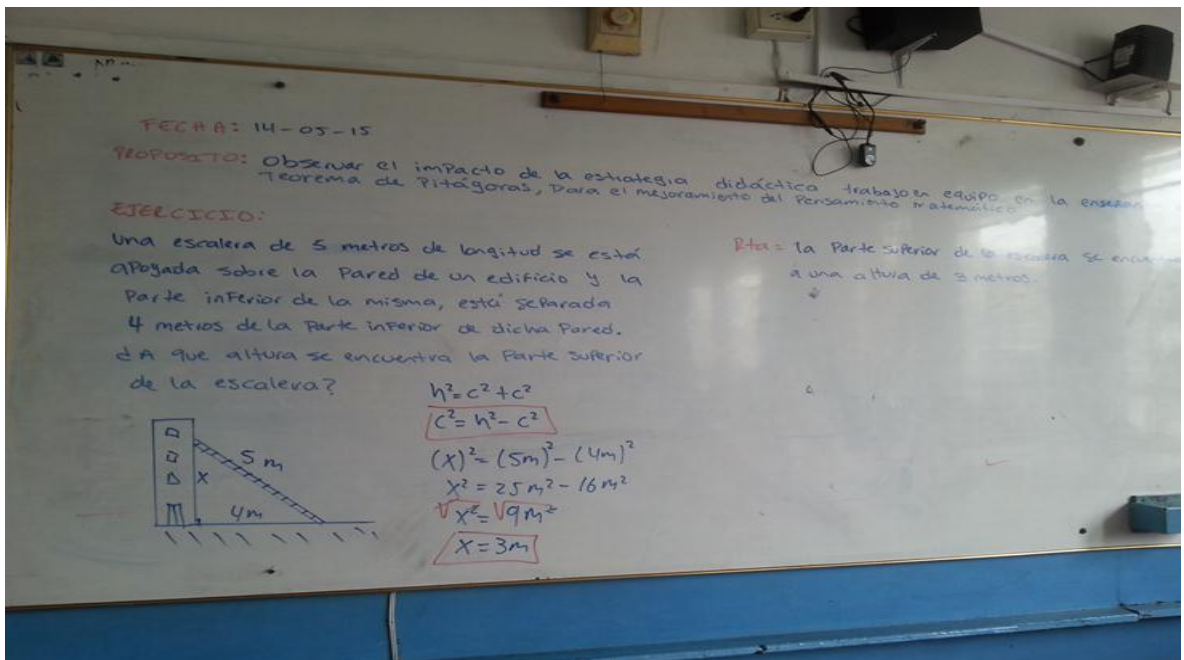 FECHA: 14-05-15
PROPOSITO: Observar el imPacto de la estrategia didáctica trabajo en equipo en la enseñan
Teorema de Pitágoras, Para el mejoramiento del Pensamiento Matemático
EJERCICIO:
Una escalera de 5 metros de longitud se está
aPoyada sobre la Pared de un edificio y la
Parte inFerior de la misma, está seParada
4 metros de la Parte inFerior de dicha Pared.
¿A que altura se encuentra la Parte SuPerior
de la escalera?
5m
X
4m
h²=c²+c²
c²=h²-c²
(X)²=(5m)²-(4m)²
X²=25m²-16m²
√X²=√9m²
X=3m
Rta= la Parte SuPerior de la escalera se encuentra
a una altura de 3 metros.